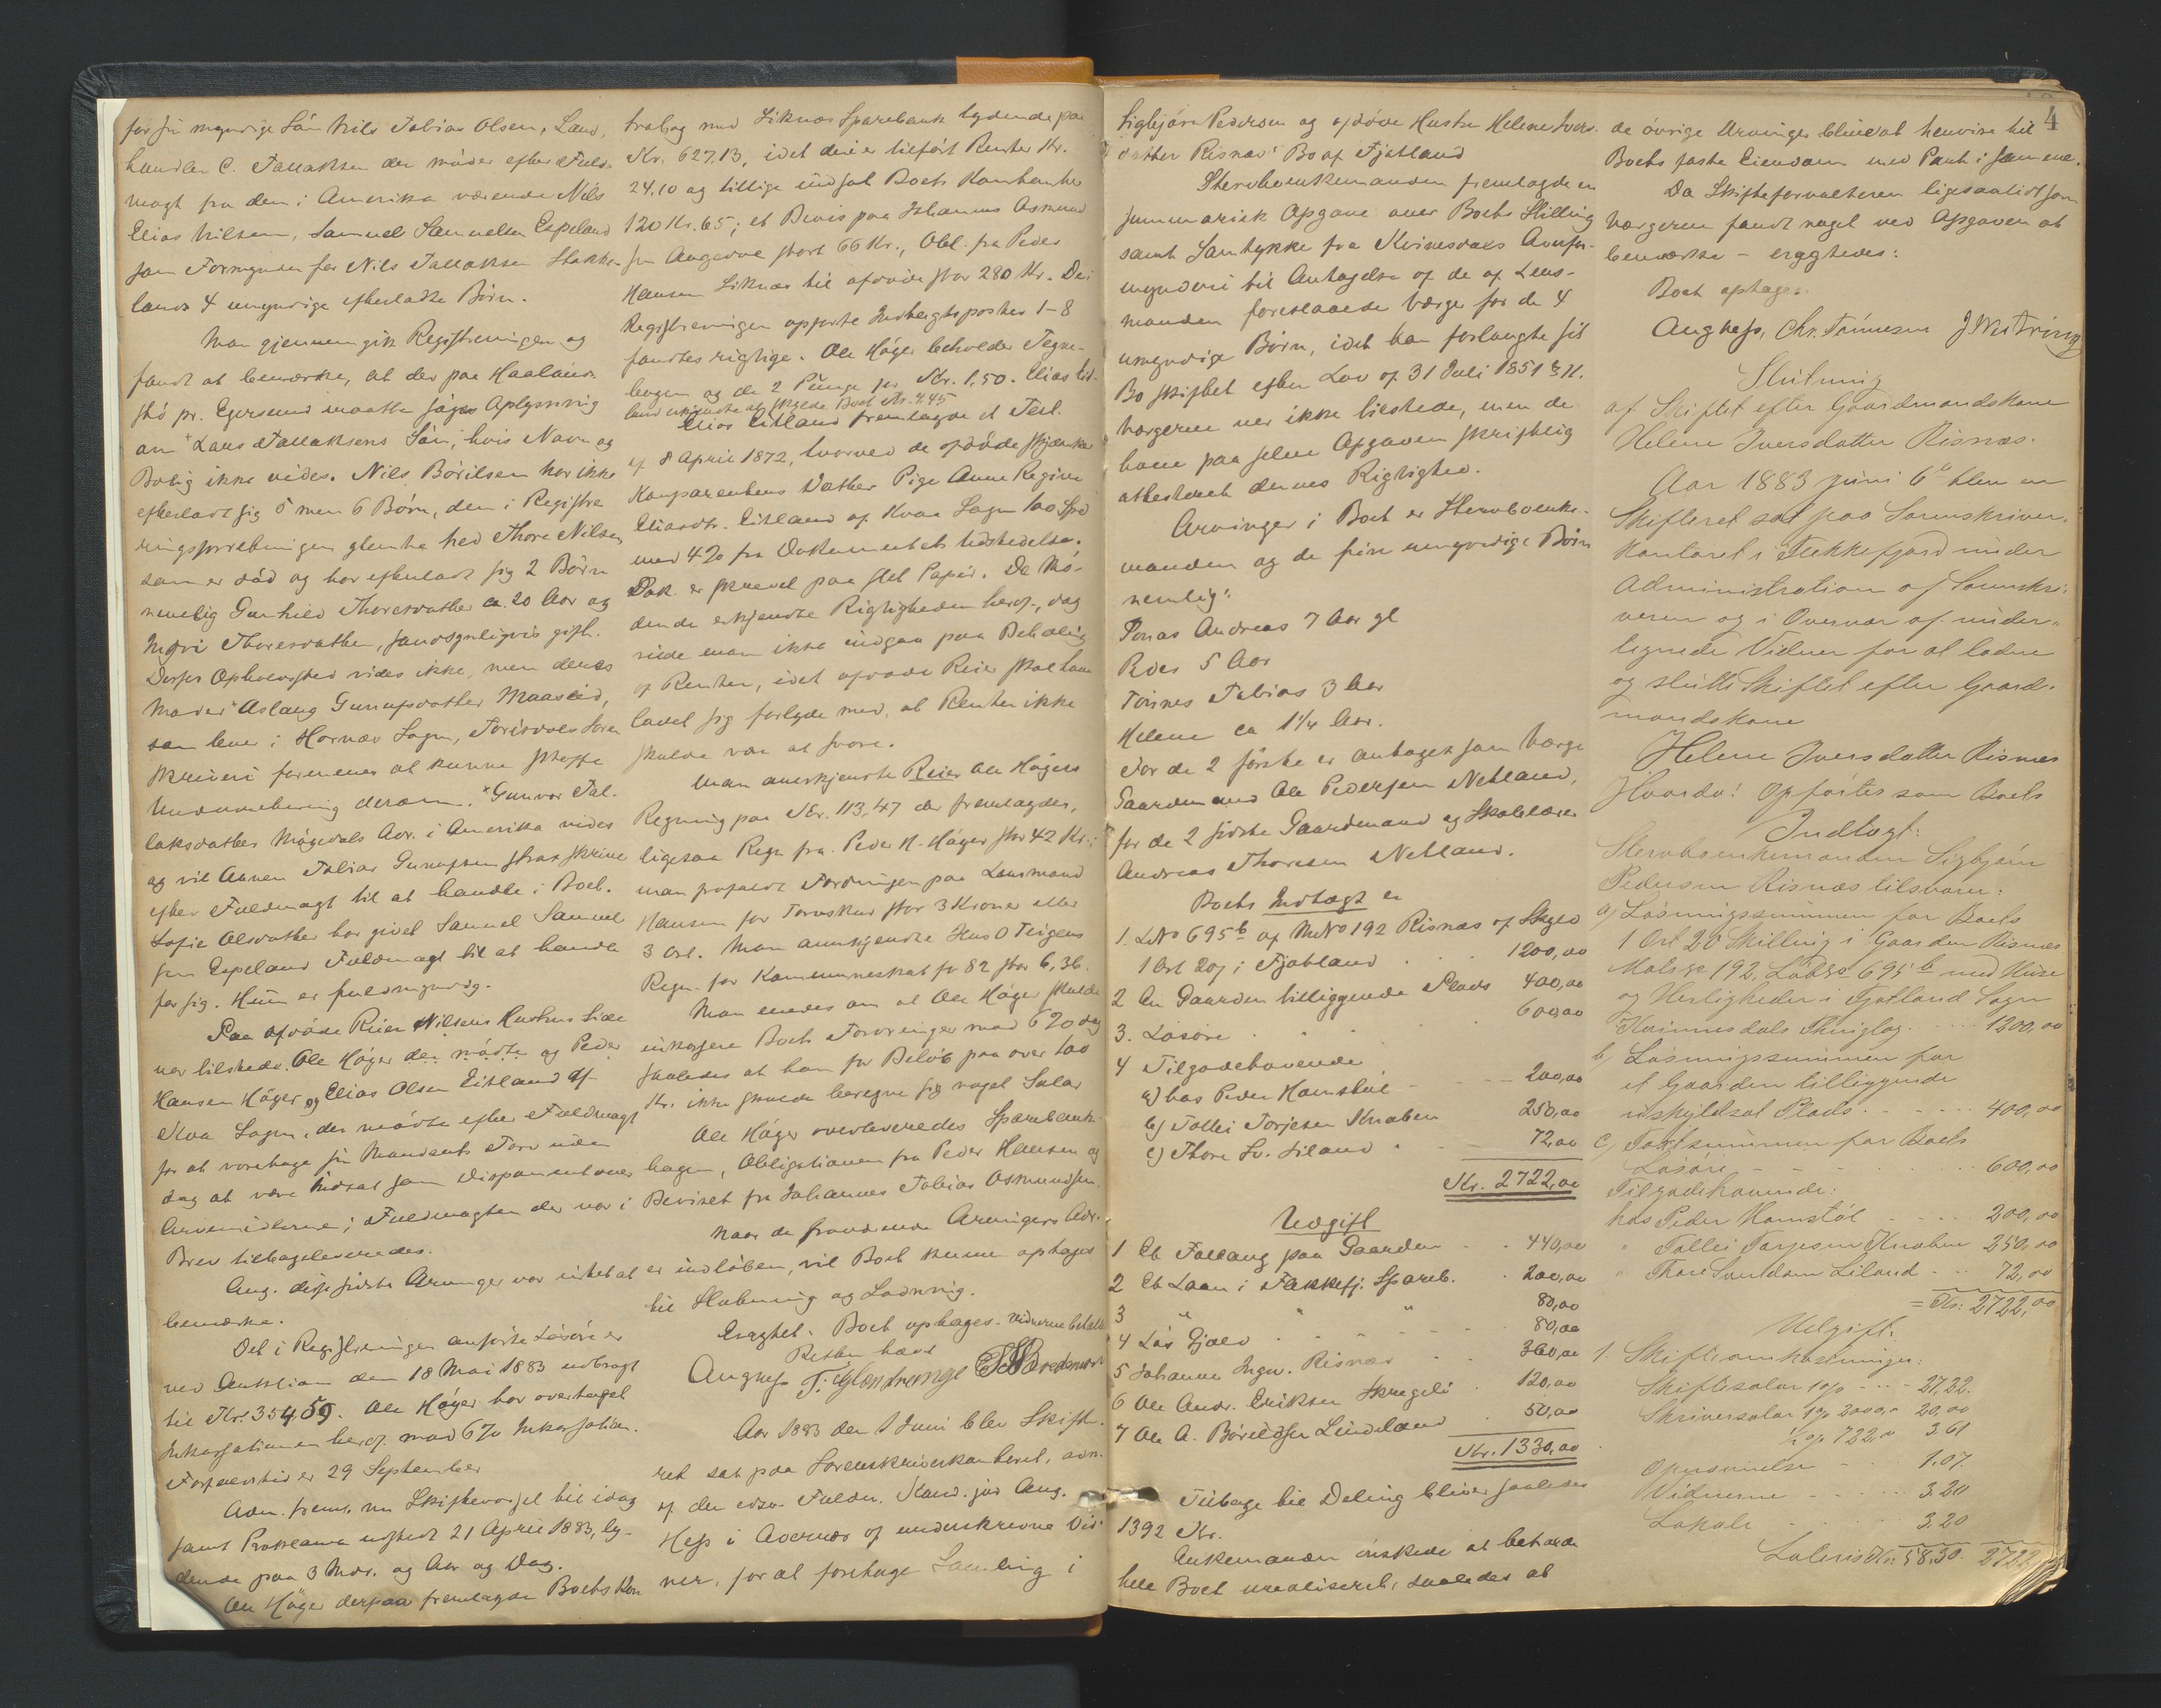 for sin myndige Sön Nils Tobias Olsen, Land-
handler C. Tallaksen der möder efter Fuld-
magt fra den i Amerika værende Nils
Elias Nilsen, Samuel Samuelsen Espeland
som Formynder for Nils Tallaksen Stakke-
lands 4 umyndige efterladte Börn.
Man gjennemgik Registreringen og
fandt at bemærke, at der paa Haaland
pr. Egersund maatte söges Oplysning
om Lars Tallaksens Sön, hvis Navn og
Bolig ikke vides. Nils Börilsen har ikke
efterladt sig 5 men 6 Börn, den i Registre
ringsforretningen glemte hed Thore Nilsen
som er död og har efterladt sig 2 Börn
nemlig Gunhild Thoresdatter ca. 20 Aar og
Thoresdatter, sandsynligvis gift.
Deres Opholdssted vides ikke, men deres
Moder Aslaug Gunufsdatter Maaseid,
som lever i Hornæs Sogn, Torisdals Soren
skriveri formenes at kunne skaffe
Underretning derom. Gunvor Tal-
laksdatter Mögedals Adr. i Amerika vides
og vil Tobias Gunufsen strax skrive
efter Fuldmagt til at handle i Boet.
Sofie Olsdatter har givet Samuel Samuel
sen Espeland Fuldmagt til at handle
for sig. Hun er fuldmyndig.
Paa afdöde Reier Nilsens Hustrus Side
var tilstede Ole Höger der mödte og Peder
Hansen Höger og Elias Olsen Eitland af
Kvaa Sogn, der mödte efter Fuldmagt
for at varetage sin Mandants Tarv uden
dog at være indsat som Disponent over
Arvemidlerne; Fuldmagten der var i
Brev tilbageleveredes.
Ang. disse sidste Arvinger var intet at
bemærke.
Det i Registreringen anförte Lösöre er
ved Auktion den 18 Mai 1883 udbragt
til Kr. 354,59. Ole Höger har overtaget
Inkassationen heraf mod 6% Inkassation.
Forfaldstid er 29 September
Adm. freml. nu Skiftevarsel til idag
samt Proklama udstedt 21 April 1883, ly-
dende paa 3 Mdr. og Aar og Dag.
Ole Höger derpaa fremlagde Boets Kon
trabog med Liknes Sparebank lydende paa
Kr. 627.13, idet deri er tilfört Renter Kr.
24.10 og tillige indsat Boets Kontanter
120 Kr. 65; et Bevis paa Johannes Asmund
sen Angedve stort 66 Kr., Obl. fra Peder
Hansen Liknes til afdöde stor 280 Kr. De i
Registreringen opförte Indtægtsposter 1-8
fandtes rigtige. Ole Höger beholder Tegne-
bogen og de 2 Punge for Kr. 1,50. Elias Eit-
land erkjendte at skylde Boet Kr. 4.45
Elias Eitland fremlagde et Test.
af 8 April 1872, hvorved de afdöde skjænke
Komparentens Datter Pige Anne Regine
Eliasdtr. Eitland af Kvaa Sogn 100 Spd
med 4% fra Dokumentets Udstedelse.
Dok. er skrevet paa slet Papir. De Mö-
dende erkjendte Rigtigheden heraf, dog
vilde man ikke indgaa paa Betaling
af Renter, idet afdöde Reier skal have
ladet sig forlyde med, at Renter ikke
skulde være at svare.
Man anerkjendte Reier Ole Högers
Regning paa Kr. 113,47 der fremlagdes,
ligesaa Regn. fra Peder H. Höger stor 42 Kr.;
man frafaldt Fordringen paa Lensmand
Hansen for stor 3 Kroner eller
3 Ort. Man anerkjendte Hans O Teigens
Regn. for Kommuneskat for 82 stor 6,36.
Man enedes om at Ole Höger skulde
inkassere Boets Fordringer mod 6% dog
saaledes at han for Belöb paa over 100
Kr. ikke skulde beregne sig noget Salær
Ole Höger overleveredes Sparebank-
bogen, Obligationen fra Peder Hansen og
Beviset fra Johannes Tobias Osmundsen.
Naar de fraværende Arvingers Adr.
er indlöben, vil Boet kunne optages
til Slutning og Lodning.
Eragtet: Boet optages. Vidnerne betalt
Retten hævet
Aug Hess
Aar 1883 den 1 Juni blev Skifte-
ret sat paa Sorenskriverkontoret, adm.
af den edsv. Fuldm. Kand. jur Aug.
Hess i Overvær af underskrevne Vid-
ner, for at foretage Samling i
4
Sigbjörn Pedersen og afdöde Hustru Helene Ivers-
datter Risnæs' Bo af Fjotland
Stervboenkemanden fremlagde en
summarisk Opgave over Boets Stilling
samt Samtykke fra Kvinesdals Overfor-
mynderi til Antagelse af de af Lens-
manden foreslaaede Værger for de 4
umyndige Börn, idet han forlangte sit
Bo skiftet efter Lov af 31 Juli 1851 § 11.
Værgerne var ikke tilstede, men de
have paa selve Opgaven skriftlig
attesteret dennes Rigtighed.
Arvinger i Boet er Stervboenke-
manden og de fire umyndige Börn
nemlig:
Jonas Andreas 7 Aar gl
Peder 5 Aar
Tönnes Tobias 3 Aar
Helene ca 1¼ Aar.
For de 2 förste er antaget som Værge
Gaardmand Ole Pedersen Netland,
for de 2 sidste Gaardmand og Skolelærer
Andreas Thoresen Netland.
Boets Indtægt er
1. LNo 695b af MNo 192 Risnæs af Skyld
1 Ort 20 ß i Fjotland 1200,00
2 En Gaarden tilliggende Plads 400,00
3. Lösöre 600,00
4 Tilgodehavende
a) hos Peder Hamstöl 200,00
b) Tollei Torjesen Knaben 250,00
c) Thore Sv. Liland 72,00
Kr. 2722,00
Udgift
1 Et Follaug paa Gaarden 440,00
2 Et Laan i Flekkefj. Spareb. 200,00
3 " " " 80,00
4 Lös Gjæld 80,00
5 Johanne Ingw. Risnæs 360,00
6 Ole Andr. Eriksen Skregeli 120,00
7 Ole A. Böreldsen Lindeland 50,00
Kr. 1330,00
Tilbage til Deling bliver saaledes
1392 Kr.
Enkemanden önskede at beholde
hele Boet urealiseret, saaledes at
de övrige Arvinger bliver at henvise til
Boets faste Eiendom med Pant i samme.
Da Skifteforvalteren ligesaalidt som
Værgerne fandt noget ved Opgaven at
bemærke - eragtedes:
Boet optages.
Aug Hess, Chr. Tönnesen
Slutning
af Skiftet efter Gaardmandskone
Helene Iversdatter Risnæs.
Aar 1883 Juni 6te blev en
Skifteret sat paa Sorenskriver-
kontoret i Flekkefjord under
Administration af Sorenskri-
veren og i Overvær af under-
tegnede Vidner for at lodne
og slutte Skiftet efter Gaard-
mandskone
Helene Iversdatter Risnæs
Hvorda! Opförtes som Boets
Indtægt:
Stervboenkemanden Sigbjörn
Pedersen Risnæs tilsvarer:
a) Lösningssummen for Boets
1 Ort 20 Skilling i Gaarden Risnæs
Mats No 192, Löbe No 695 b med Huse
og Herligheder i Fjotland Sogn
Kvinnesdals Thinglag 1200,00
b) Lösningssummen for
et Gaarden tilliggende
uskyldsat Plads 400,00
c) Taxtsummen for Boets
Lösöre 600,00
Tilgodehavende:
hos Peder Hamstöl 200,00
" Tollei Torjesen Knaben 250,00
" Thore Svendsen Liland 72,00
= Kr. 2722,00
Udgift.
1. Skifteomkostninger:
Skiftesalær 1% 27,22.
Skriversalær 1% 2000,- 20,00
½% 722,00 3.61
1.07.
Vidnerne 3.20
Lokale 3.20
Lateris Kr. 58.30. 2722